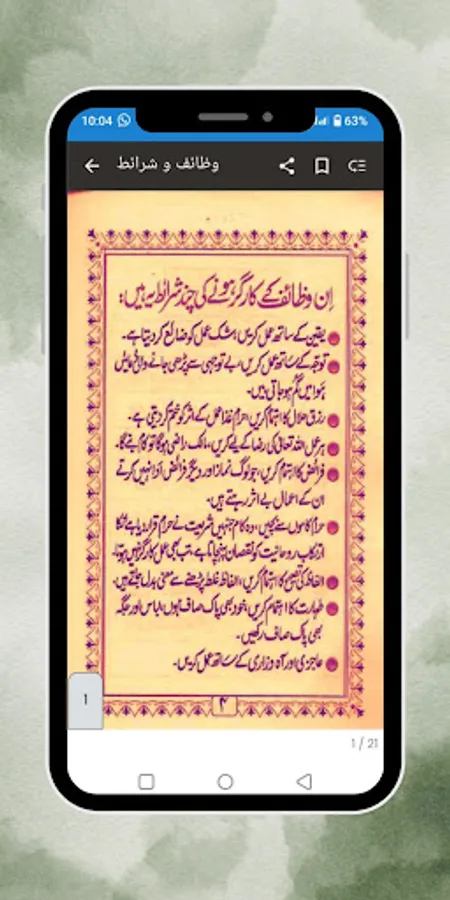 10:04
63%
وظائف و شرائط
اِن وظائف کے کارگر ہونے کی چند شرائط یہ ہیں:
یقین کے ساتھ عمل کریں، شک عمل کو ضائع کر دیتا ہے۔
توجہ کے ساتھ عمل کریں، بے توجہی سے پڑھی جانے والی دعائیں
ہَوا میں گُم ہو جاتی ہیں۔
رزقِ حلال کا اہتمام کریں، حرام غذا عمل کے اثر کو ختم کر دیتی ہے۔
ہر عمل اللہ تعالیٰ کی رضا کے لیے کریں، مالک راضی ہوگا تو کام بنے گا۔
فرائض کا اہتمام کریں، جو لوگ نماز اور دیگر فرائض ادا نہیں کرتے
ان کے اعمال بے اثر رہتے ہیں۔
حرام کاموں سے بچیں، وہ کام جنہیں شریعت نے حرام قرار دیا ہے انکا
ارتکاب روحانیت کو نقصان پہنچاتا ہے، تب بھی عمل کارگر نہیں ہوتا۔
الفاظ کی تصحیح کا اہتمام کریں، الفاظ غلط پڑھنے سے معنی بدل جاتے ہیں۔
طہارت کا اہتمام کریں، خود بھی پاک صاف ہوں، لباس اور جگہ
بھی پاک صاف رکھیں۔
عاجزی اور آہ و زاری کے ساتھ عمل کریں۔
۴
1
1 / 21